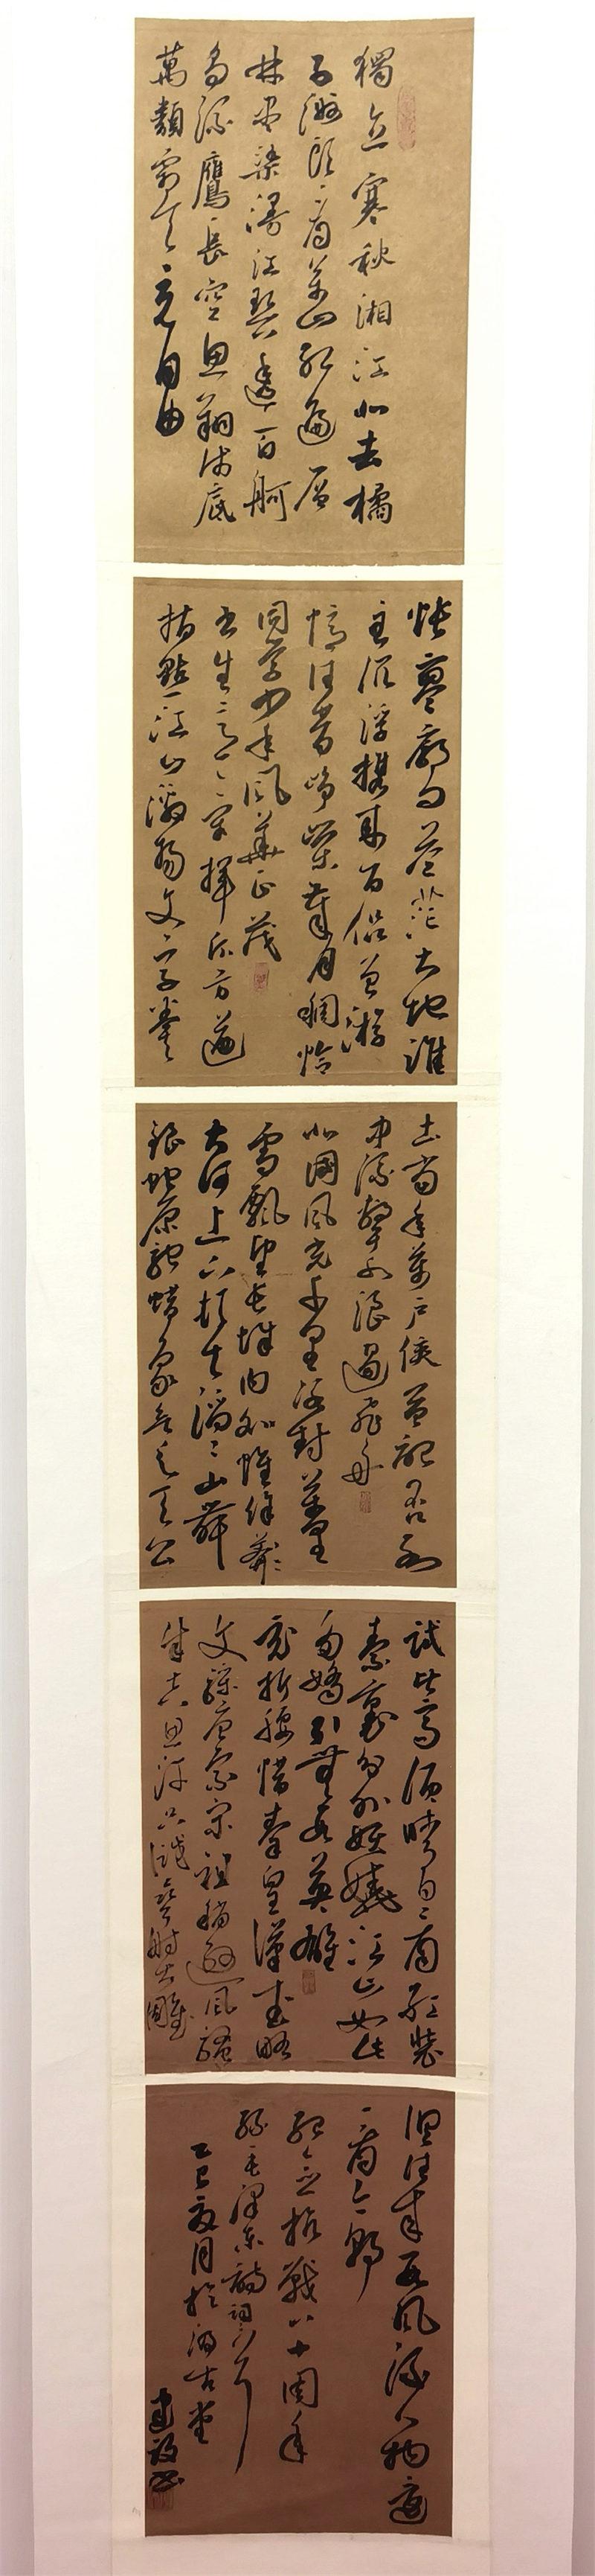 獨立寒秋湘江北去橘
子洲頭看萬山紅遍層
林盡染漫江碧透百舸
爭流鷹長空魚翔淺底
萬類霜天競自由
悵寥廓問蒼茫大地誰
主沉浮攜來百侶曾游
憶往昔崢嶸歲月稠恰
同學少年風華正茂
書生意氣揮斥方遒
指點江山激揚文字糞
土當年萬戶侯曾記否到
中流擊水浪遏飛舟
北國風光千里冰封萬里
雪飄望長城內外惟餘莽莽
大河上下頓失滔滔山舞
銀蛇原馳蠟象欲與天公
試比高須晴日看紅裝
素裹分外妖嬈江山如此
多嬌引無數英雄
競折腰惜秦皇漢武略
文采唐宗宋祖稍遜風騷
成吉思汗只識彎射大雕
俱往矣數風流人物還
看今朝
紀念抗戰八十周年
錄毛澤東詩詞
乙巳夏月於古堂
建設書